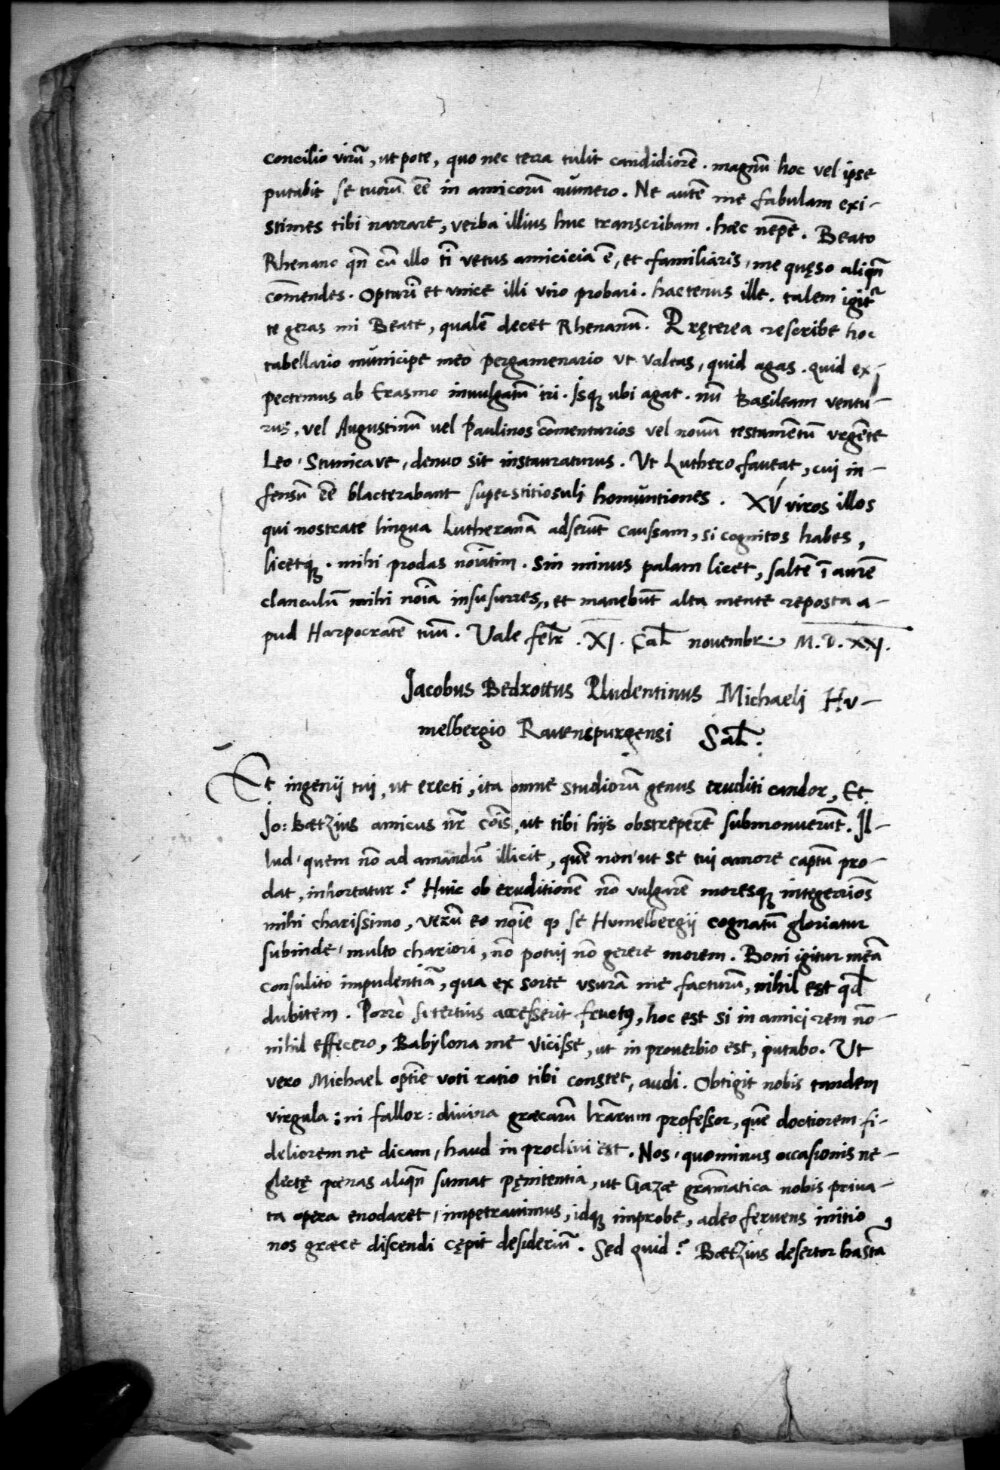 concilio virū, ut pote, quo nec terra tulit candidiorē. magnū hoc vel ipse
putabit se tuorū eē in amicorū numero. Ne autē me fabulam exi-
stimes tibi narrare, verba illius huc transcribam. hæc nēpe. Beato
Rhenano qñ cū illo tī vetus amicicia ē, et familiaris, me quęso aliqñ
cōmendes. Optarī et unice illi viro probari. hactenus ille. talem igit᷑
te geras mi Beate, qualē decet Rhenanū. Pręterea rescribe hoc
tabellario municipe meo pergamenario ut valeas, quid agas. quid ex-
pectemus ab Erasmo invulgatū iri. Isq; ubi agat. nū Basileam ventu-
rus, vel Augustinū vel Paulinos cōmentarios vel novū testamētū urgēte
Leo, Stunicave, denuo sit instauraturus. Ut Luthero faveat, cui in-
fensū eē blacterabant superstitiosuli homuntiones. XV viros illos
qui nostrate lingua Lutheranā adserūt caussam, si cognitos habes,
licetq;. mihi prodas noīatim. Sin minus palam licet, saltē ī aurē
clanculū mihi noīa insusurres, et manebūt alta mente reposta a-
pud Harpocratē tuū. Vale . XI. Cal novembr. M.D.XXI.
Jacobus Bedrottus Pludentinus Michaeli Hu-
melbergio Ravenspurgensi Sal.
Et ingenii tui, ut erecti, ita omne studiorū genus eruditi candor, Et
Jo: Bætzius amicus nr̄ cōīs, ut tibi hijs obstreperē submonuerūt. Il-
lud, quem nō ad amandū illicit, quē non ut se tui amore captū pro-
dat, inhortatur? Huic ob eruditionē nō vulgarē moresq; integerrīos
mihi charissimo, verū eo noīe qꝫ se Humelbergij cognatū gloriatur
subinde, multo chariori, nō potui nō gerere morem. Boni igitur meā
consulito impudentiā, qua ex sorte usurā me facturū, nihil est qd̄
dubitem. Porro si tertius accesserit fructus, hoc est si in amici rem nō-
nihil effecero, Babylona me vicisse, ut in proverbio est, putabo. Ut
vero Michael optīe voti ratio tibi constet, audi. Obtigit nobis tandem
virgula: ni fallor: divina græcarū lr̄arum professor, quē doctiorem fi-
deliorem ne dicam, haud in proclivi est. Nos, quominus occasionis ne-
glectę pœnas aliqñ sumat pęnitentia, ut Gazæ grāmatica nobis priva-
ta opera enodaret, impetravimus, idq; improbe, adeo fervens initio
nos græce discendi cępit desideriū. Sed quid? Bætzius desertor hasta